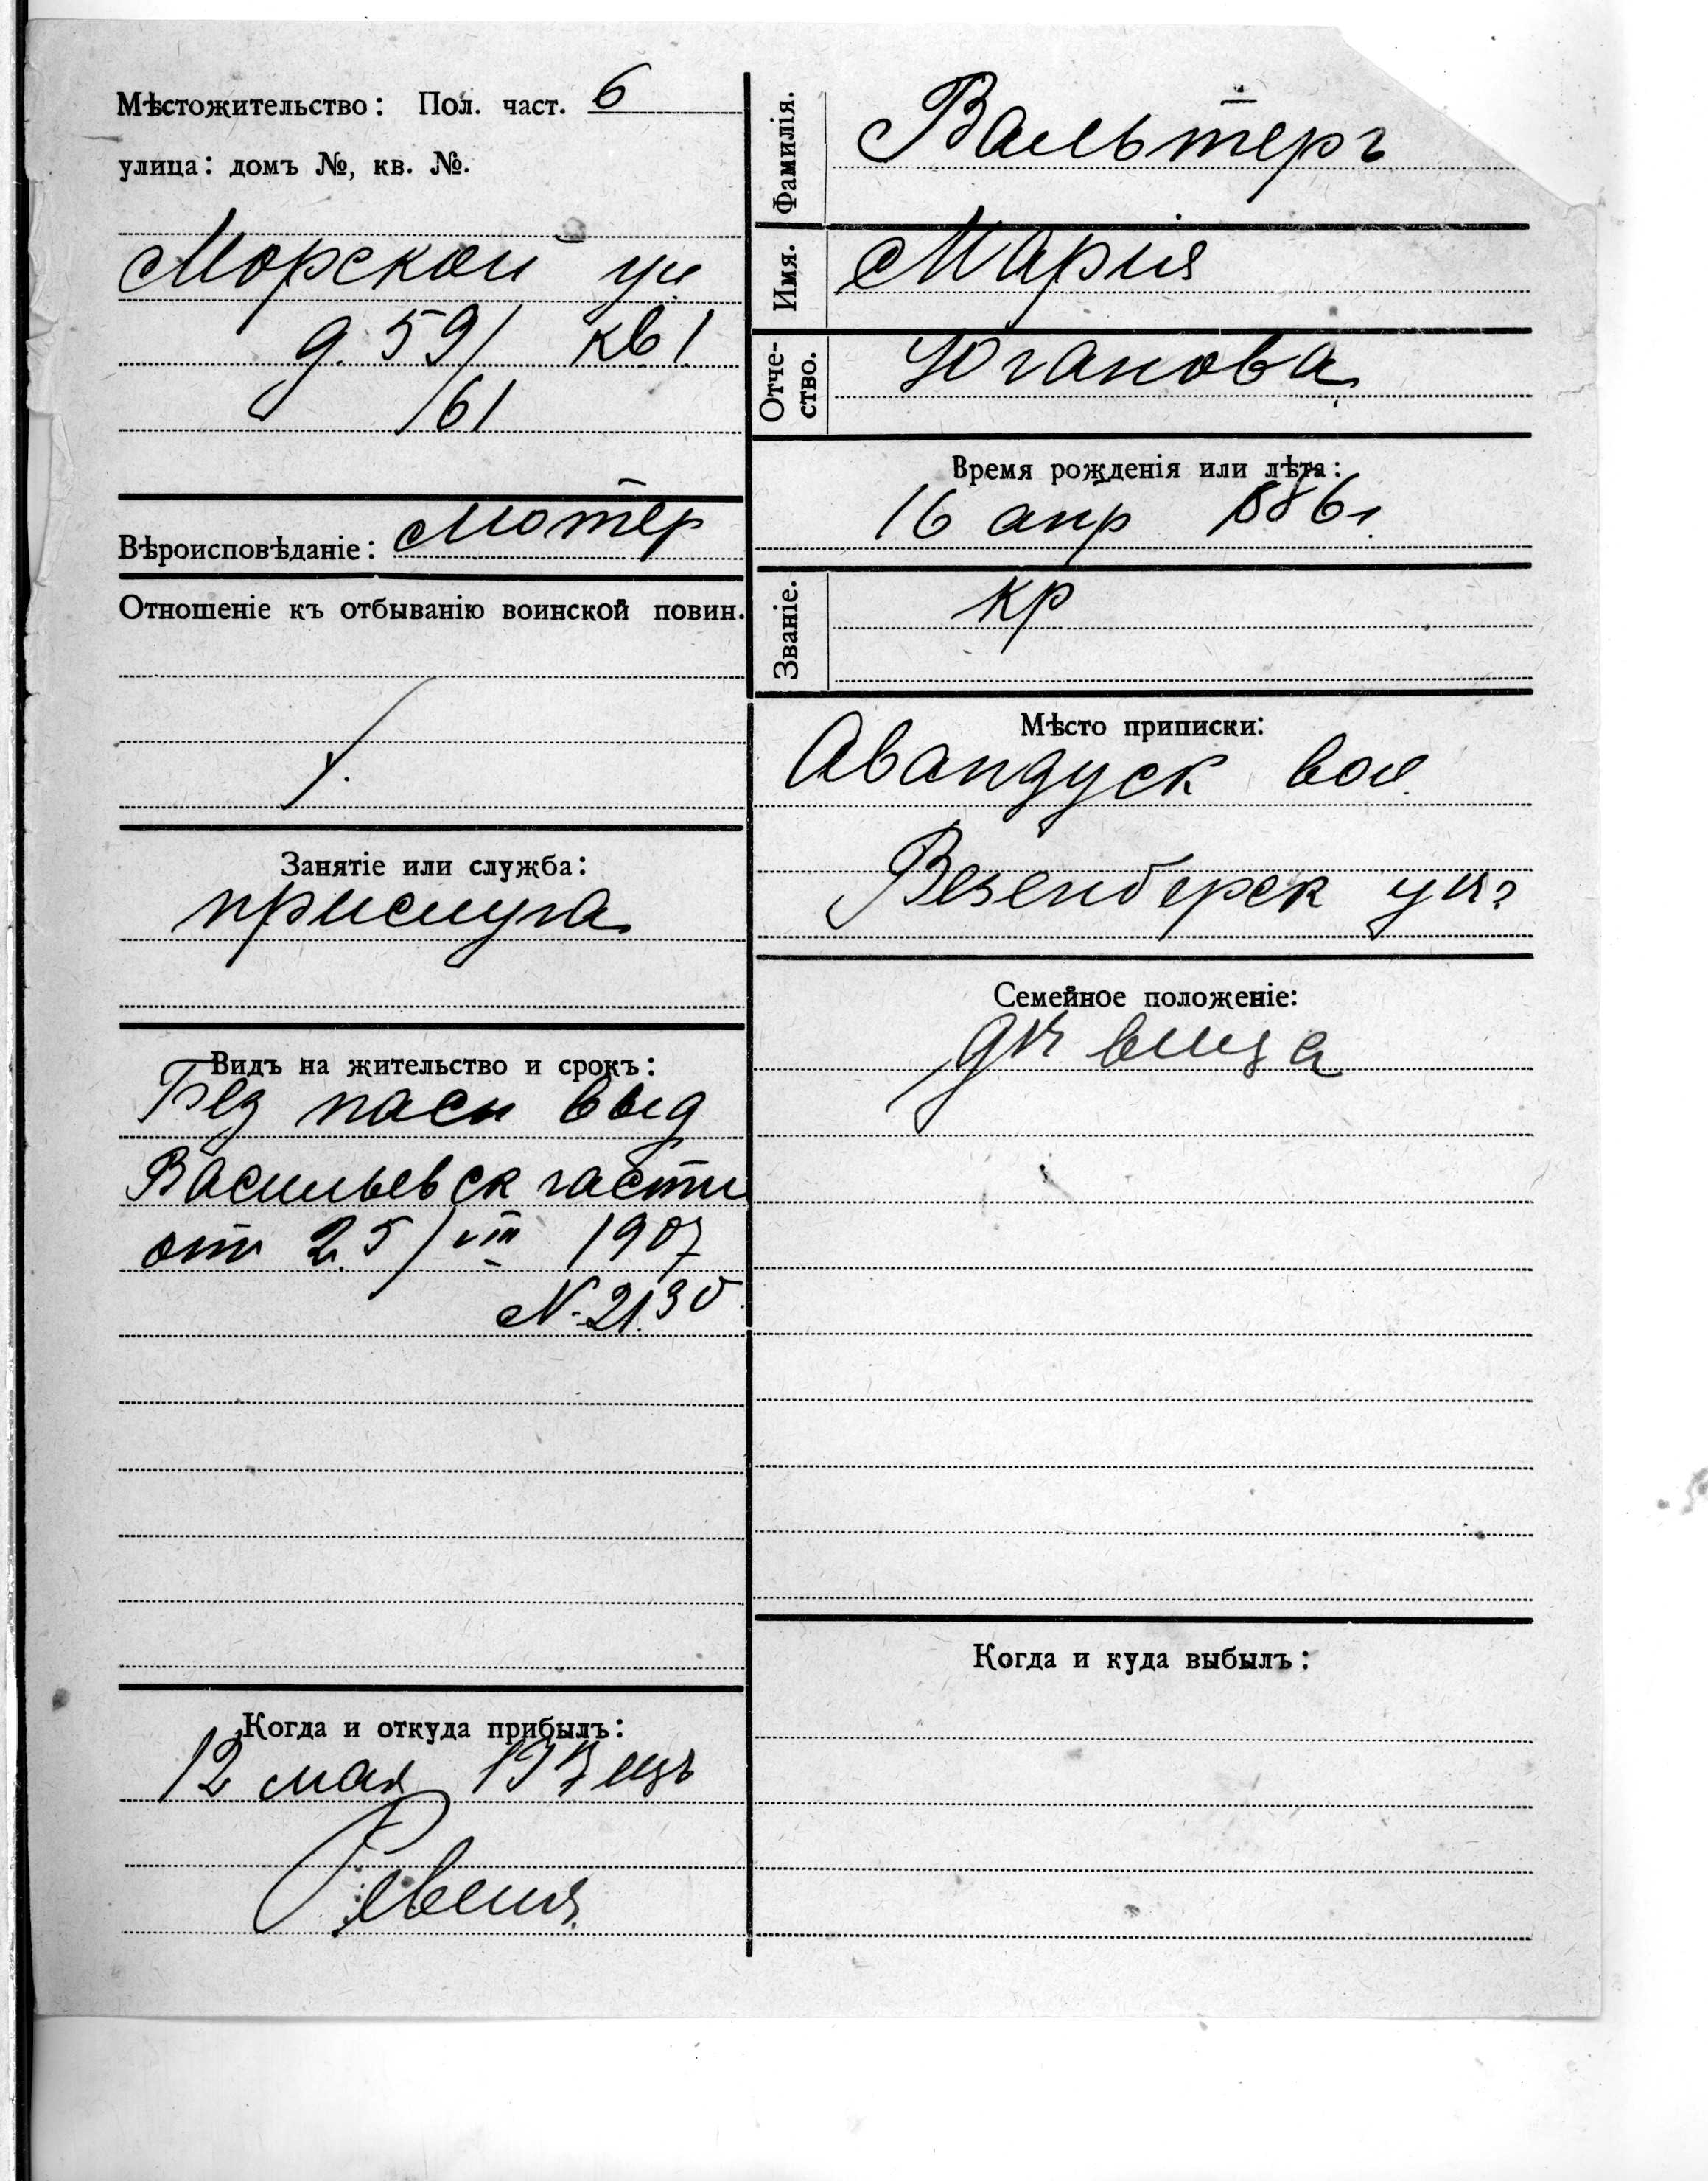 Мѣстожительство: Пол. част. 6
улица: домъ №, кв. №.
Морской ул
д. 59/ кв 1
/61
Вѣроисповѣданіе: Лютер
Отношеніе къ отбыванію воинской повин.
Занятіе или служба:
прислуга
Видъ на жительство и срокъ:
Без пасп выд
Васильевск части
от 25/VIII 1907
№ 2130
Когда и откуда прибылъ:
12 мая
Ревеля
Фамилія.
Вальтеръ
Имя.
Марія
Отче-
ство.
Юганова
Время рожденія или лѣта:
16 апр 1886 г.
Званіе.
кр
Мѣсто приписки:
Авандуск вол.
Везенберск
Семейное положеніе:
дѣвица
Когда и куда выбылъ: